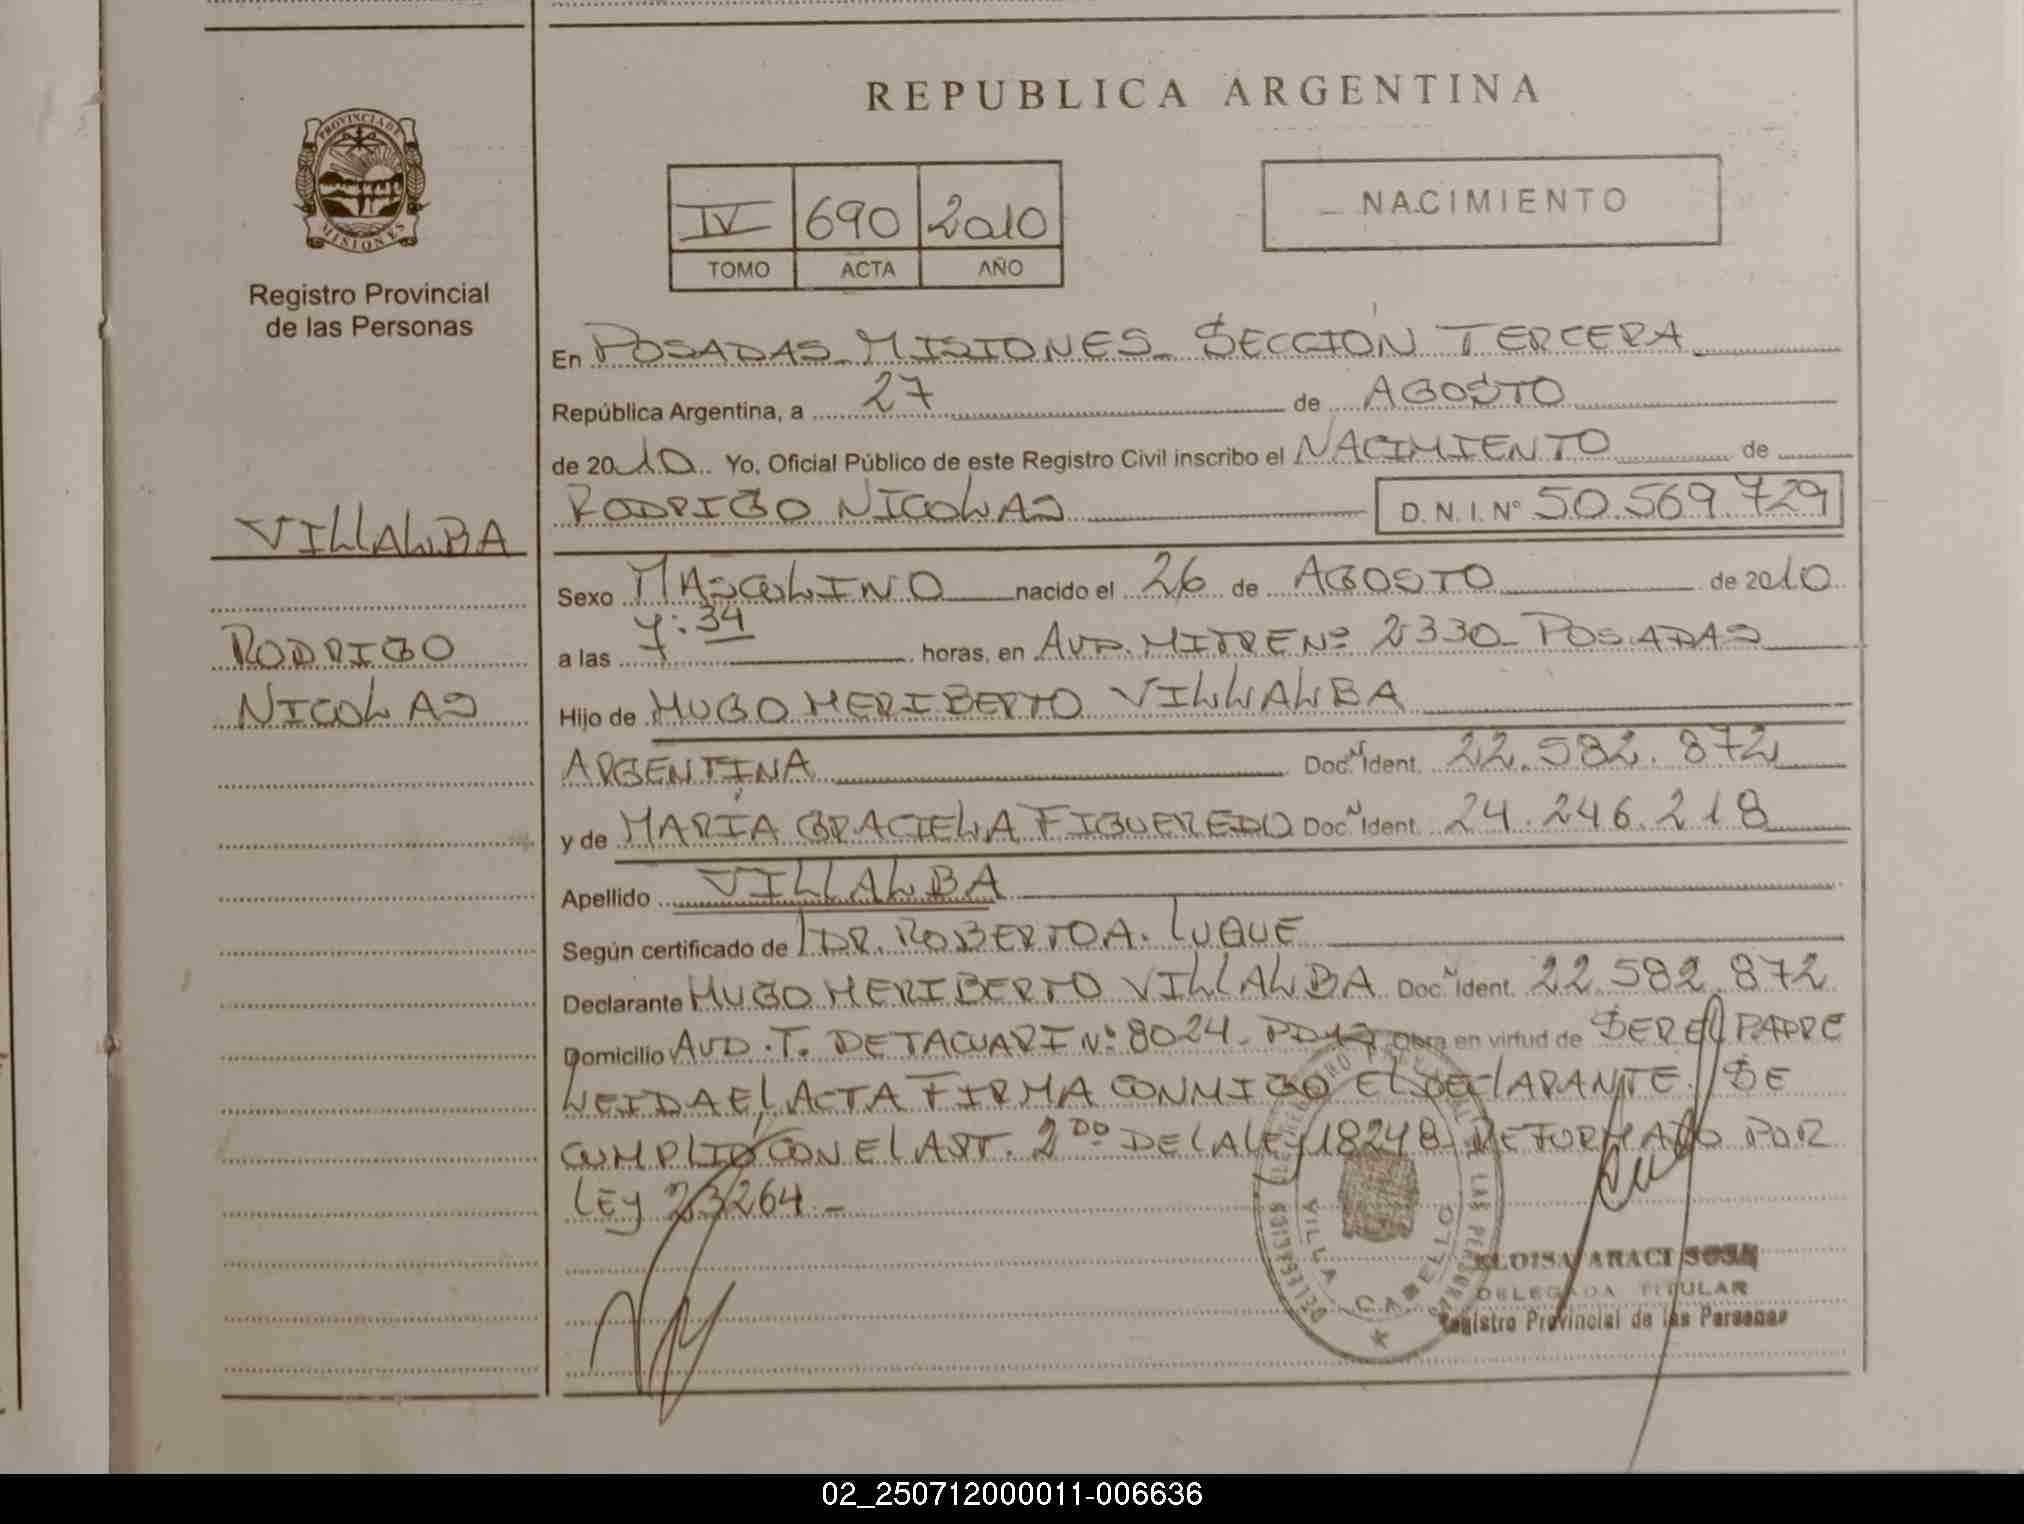 REPUBLICA ARGENTINA
PROVINCIA DE
MISIONES
Registro Provincial
de las Personas
IV 690 2010
TOMO ACTA AÑO
NACIMIENTO
VILLALBA
RODRIGO
NICOLAS
En POSADAS MISIONES SECCION TERCERA
República Argentina, a 27 de AGOSTO
de 2010 Yo, Oficial Público de este Registro Civil inscribo el NACIMIENTO de
RODRIGO NICOLAS D.N.I. Nº 50.569.729
Sexo MASCULINO nacido el 26 de AGOSTO de 2010
a las 7:34 horas, en AVD. MITRE Nº 2330 POSADAS
Hijo de HUGO HERIBERTO VILLALBA
ARGENTINA Doc. Ident. 22.582.872
y de MARÍA GRACIELA FIGUEREDO Doc. Ident. 24.246.218
Apellido VILLALBA
Según certificado de DR. ROBERTO A. LUQUE
Declarante HUGO HERIBERTO VILLALBA Doc. Ident. 22.582.872
Domicilio AVD. T. DE TACUARI Nº 8024 - Obra en virtud de SER EL PADRE
LEIDA EL ACTA FIRMA CONMIGO EL DECLARANTE. SE
CUMPLIÓ CON EL ART. 2DO DE LA LEY 18248 REFORMADO POR
LEY 23264 -
VILLA CABELLO
ELOISA ARACI SOSA
DELEGADA TITULAR
Registro Provincial de las Personas
02_250712000011-006636